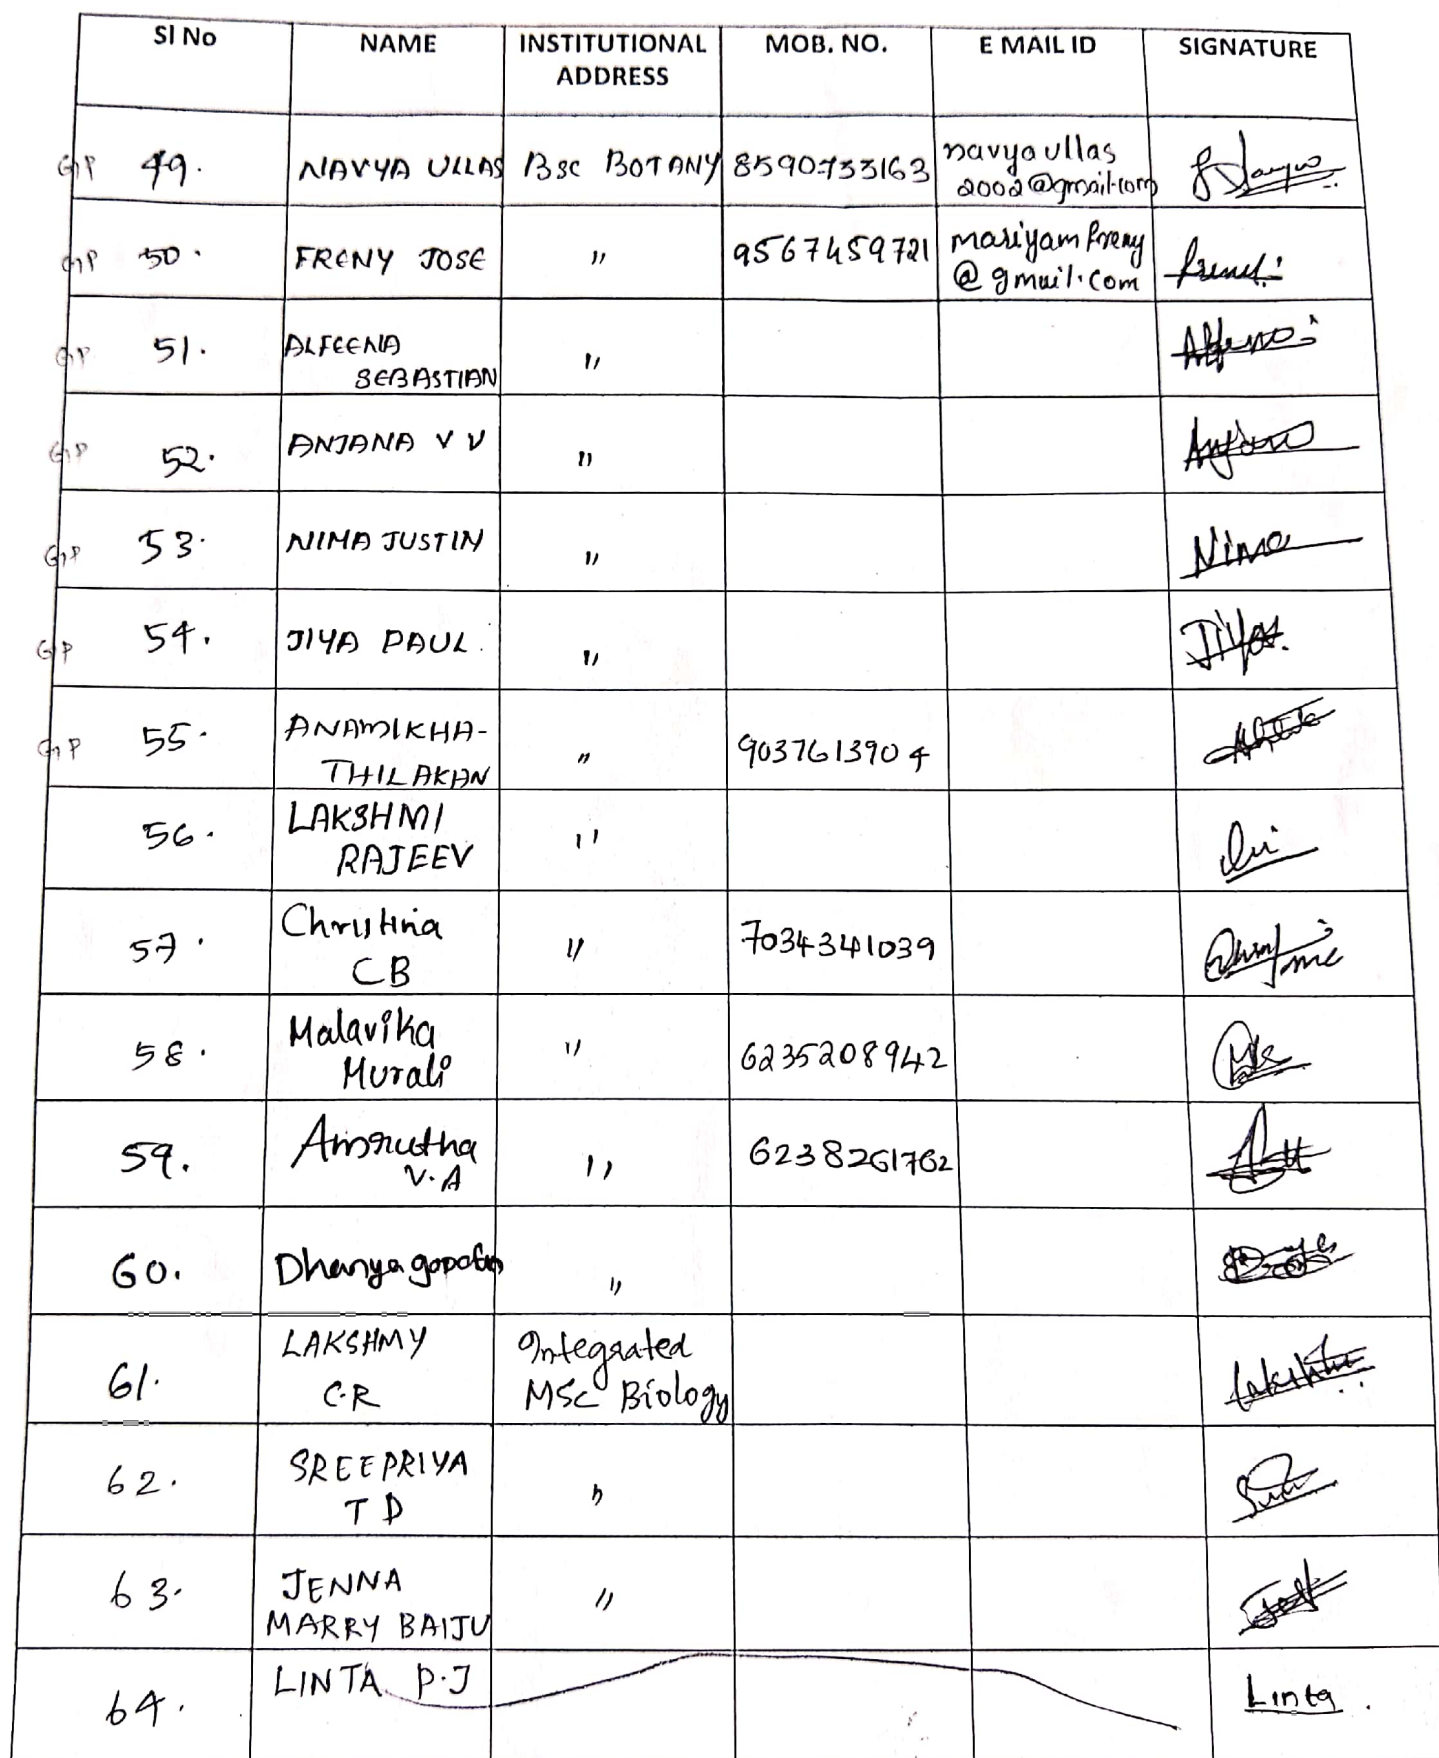 SI No NAME INSTITUTIONAL MOB. NO. E MAIL ID SIGNATURE
ADDRESS
GP 49. NAVYA ULLAS Bsc BOTANY 8590733163 navyaullas
2002@gmail.com
GP 50. FRENY JOSE " 9567459721 mariyamfreny
@gmail.com
GP 51. ALFEENA
SEBASTIAN " Alfeena
GP 52. ANJANA V V " Anjana
GP 53. NIMA JUSTIN " Nima
GP 54. JIYA PAUL. " Jiya
GP 55. ANAMIKHA-
THILAKAN " 9037613904
56. LAKSHMI
RAJEEV "
57. Christina
CB " 7034341039
58. Malavika
Murali " 6235208942
59. Amrutha
V.A " 6238261762
60. Dhanya gopalan "
61. LAKSHMY Integrated
C.R MSc Biology
62. SREEPRIYA
T D "
63. JENNA
MARRY BAIJU "
64. LINTA P.J Linta